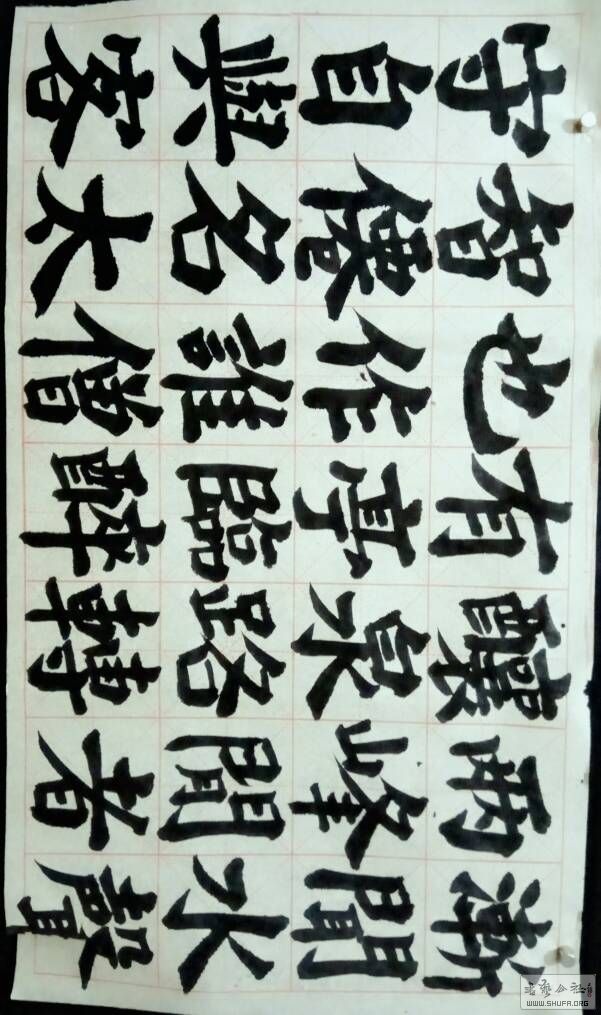 漸聞水聲
兩峰間者
釀泉路轉
有亭臨醉
也作誰僧
智僊名太
守自與客
WWW.SHUFA.ORG